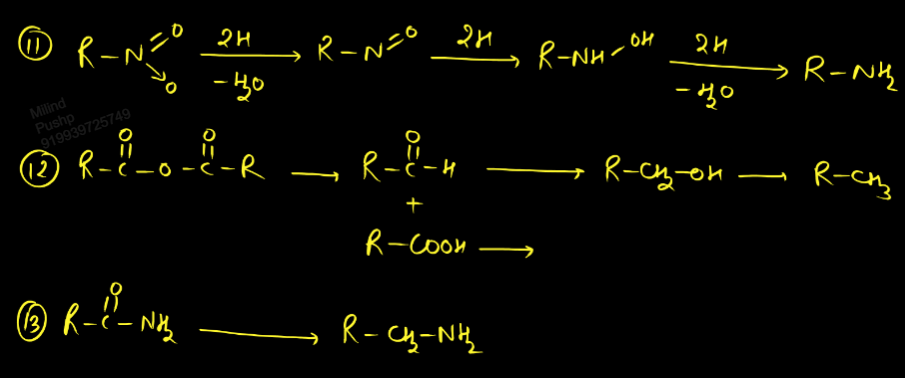 (11) R-N(=O)→O 2H/-H₂O → R-N=O 2H → R-NH-OH 2H/-H₂O → R-NH₂
Milind
Pushp
919939725749
(12) R-C(=O)-O-C(=O)-R → R-C(=O)-H → R-CH₂-OH → R-CH₃
+
R-COOH →
(13) R-C(=O)-NH₂ → R-CH₂-NH₂